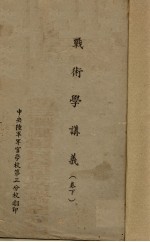 戰術學講義（卷下）
中央陸軍軍官學校第二分校翻印